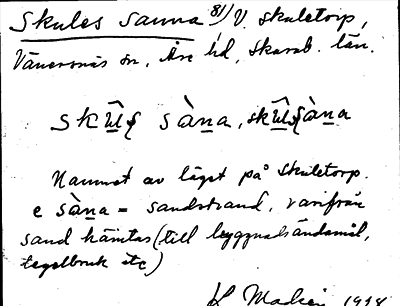 Skules sanna 81) V. Skuletorp,
Vänersnäs sn, Åse hd, Skarab. län.
skûl̲s sàn̲a, skûl̲ssàn̲a
Namnet av läget på Skuletorp.
e sàn̲a = sandstrand, varifrån
sand hämtas (till byggnadsändamål,
tegelbruk etc)
1928